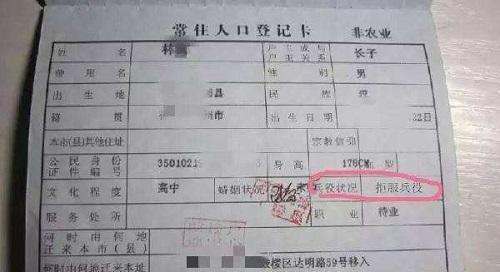 常住人口登记卡 非农业
姓名 林 户主或与户主关系 长子
曾用名 性别 男
出生地 县 民族
籍贯 州市 出生日期 日
本市(县)其他住址 宗教信仰
公民身份证件编号 3501021 身高 178CM 血型
文化程度 高中 婚姻状况 兵役状况 拒服兵役
服务处所 职业 待业
何时由何地迁来本市(县)
何时由何地迁来本址 鼓楼区达明路59号移入